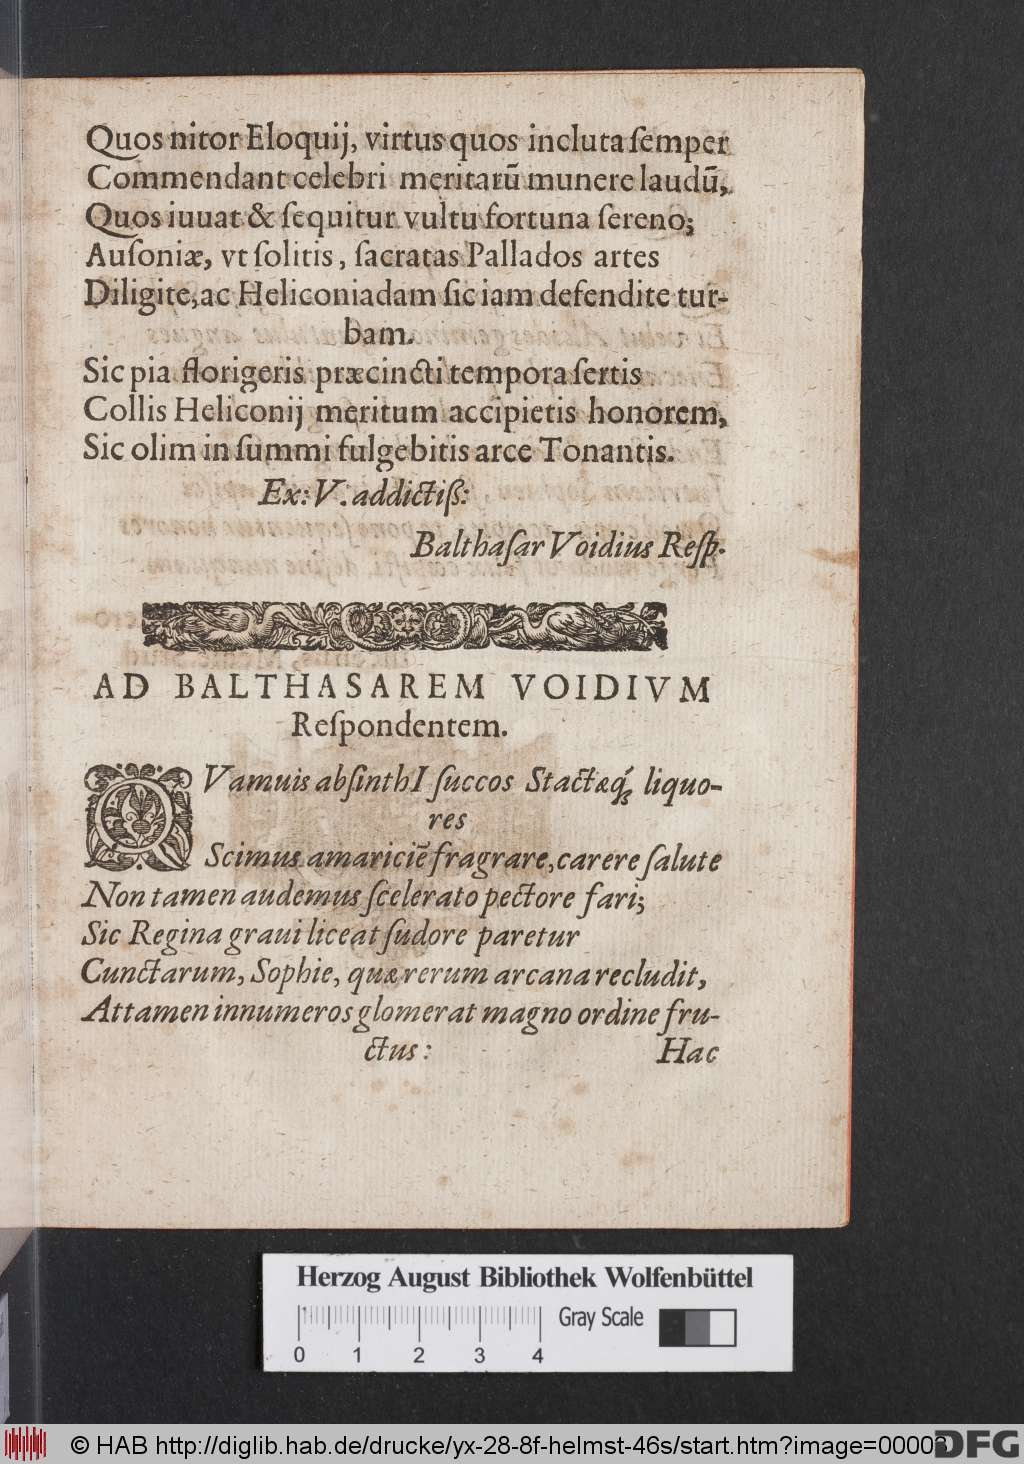 Quos nitor Eloquij, virtus quos incluta ſemper
Commendant celebri meritarū munere laudū,
Quos iuuat & ſequitur vultu fortuna ſereno;
Auſoniæ, vt ſolitis, ſacratas Pallados artes
Diligite, ac Heliconiadam ſic iam defendite tur-
bam.
Sic pia florigeris præcincti tempora ſertis
Collis Heliconij meritum accipietis honorem,
Sic olim in ſummi fulgebitis arce Tonantis.
Ex: V. addictiß:
Balthaſar Voidius Reſp.
AD BALTHASAREM VOIDIVM
Reſpondentem.
QVamuis abſinthI ſuccos Stactæq́ liquo-
res
Scimus amariciē fragrare, carere ſalute
Non tamen audemus ſcelerato pectore fari;
Sic Regina graui liceat ſudore paretur
Cunctarum, Sophie, quæ rerum arcana recludit,
Attamen innumeros glomerat magno ordine fru-
ctus:
Hac
Herzog August Bibliothek Wolfenbüttel
Gray Scale
0 1 2 3 4
© HAB http://diglib.hab.de/drucke/yx-28-8f-helmst-46s/start.htm?image=00003
DFG